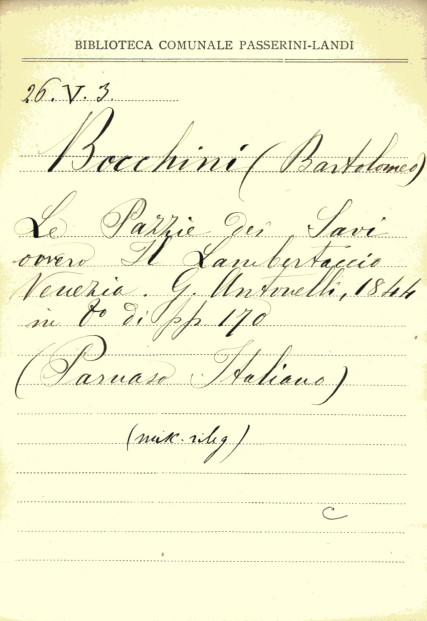 BIBLIOTECA COMUNALE PASSERINI-LANDI
26. V. 3.
Bocchini (Bartolomeo)
Le Pazzie dei Savi
ovvero Il Lambertaccio
Venezia. G. Antonelli, 1844
in 8º di pp 170
(Parnaso Italiano)
C